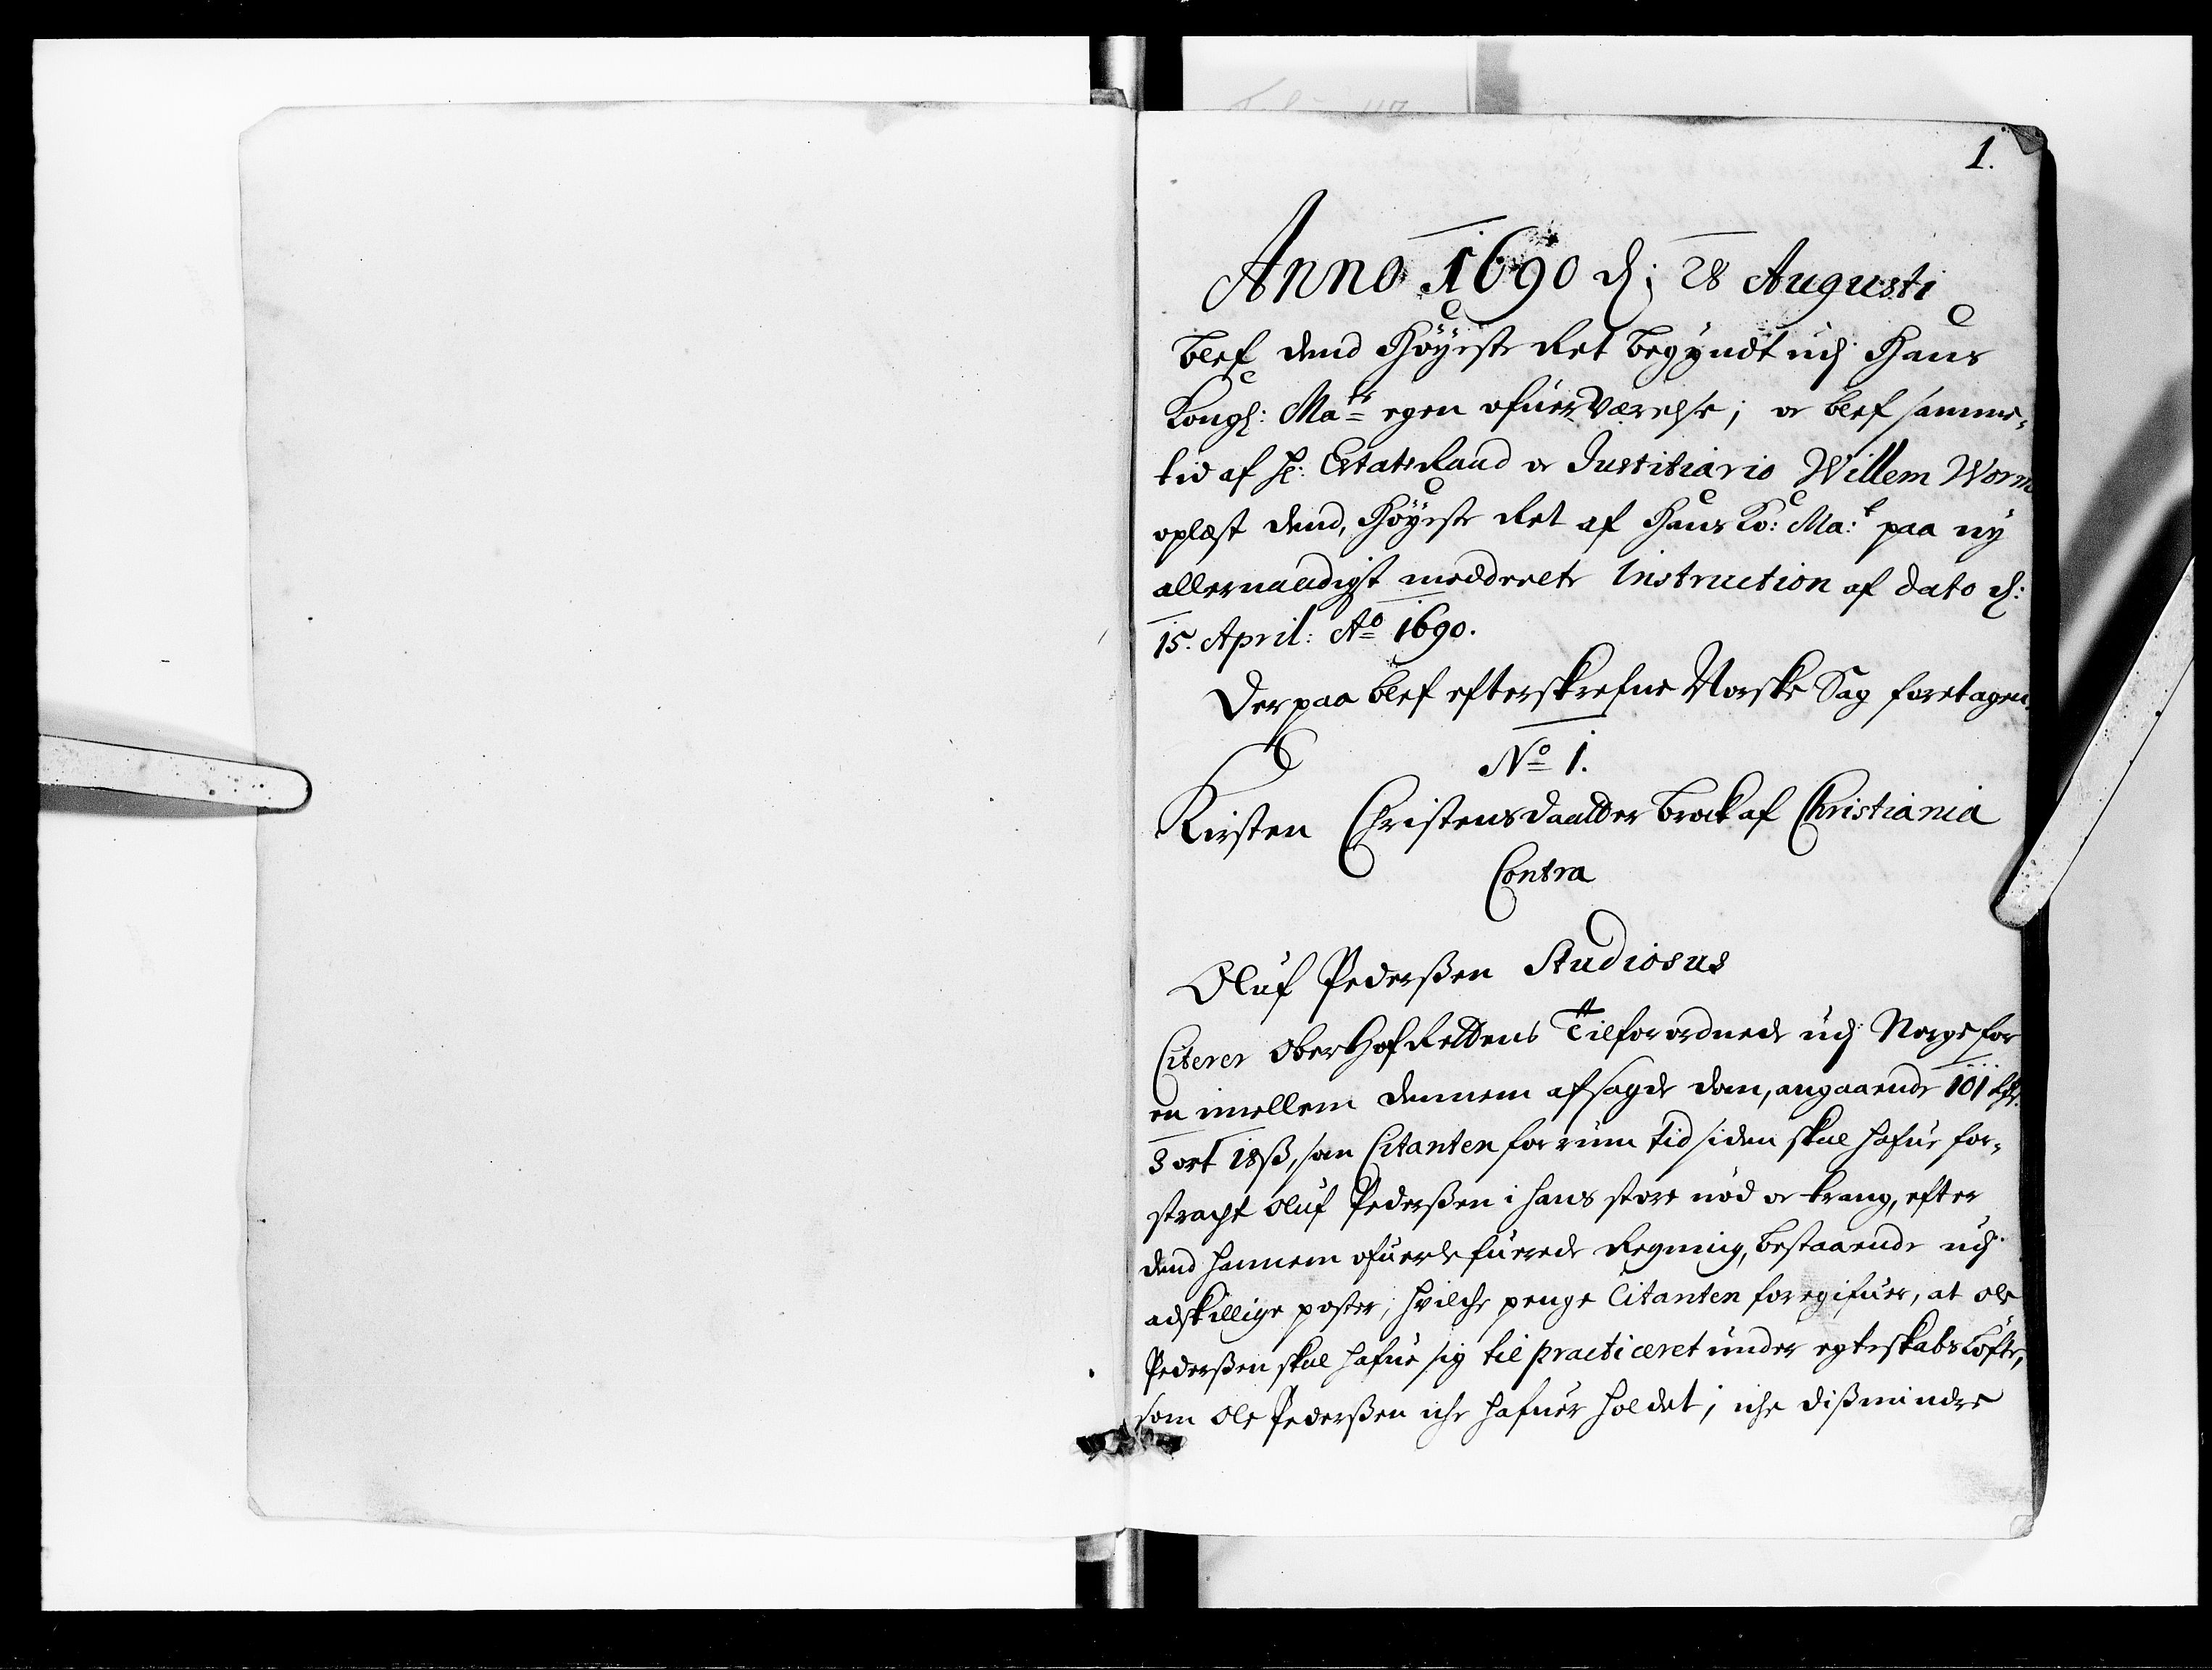 1.
Anno 1690 d: 28 Augusti
blef dend Høyeste Ret begyndt udj Hans
Kongl: Ma<sup>ts</sup> egen ofuerværelse; oc blef samme-
tid af Hr: EtatsRaad oc Justitiario Willem Worm
oplæst dend, Høyeste Ret af Hans Ko: Ma:<sup>t</sup> paa ny
allernaadigst meddeelte Instruction af dato d:
15. April: A<sup>o</sup> 1690.
Derpaa blef efterskrefne Norske Sag foretagen.
N<sup>o</sup> 1.
Kirsten Christensdaatter Brock af Christiania
Contra
Oluf Pederßen Studiosus
Citerer OberHofRettens Tilforordnede udj Norge for
en imellem dennem afsagde dom, angaaende 101 Rdr.
3 ort 18 ß, som Citanten for rum tid siden skal hafue for-
stragt Oluf Pederßen i hans store nød oc trang, efter
dend hannem ofuerlefuerede Regning, bestaaende udj
adskillige poster, hvilche penge Citanten foregifuer, at Ole
Pederßen skal hafue sig til practiceret under egteskabs Løfte,
som Ole Pederßen iche hafuer holdet; iche dißmindre